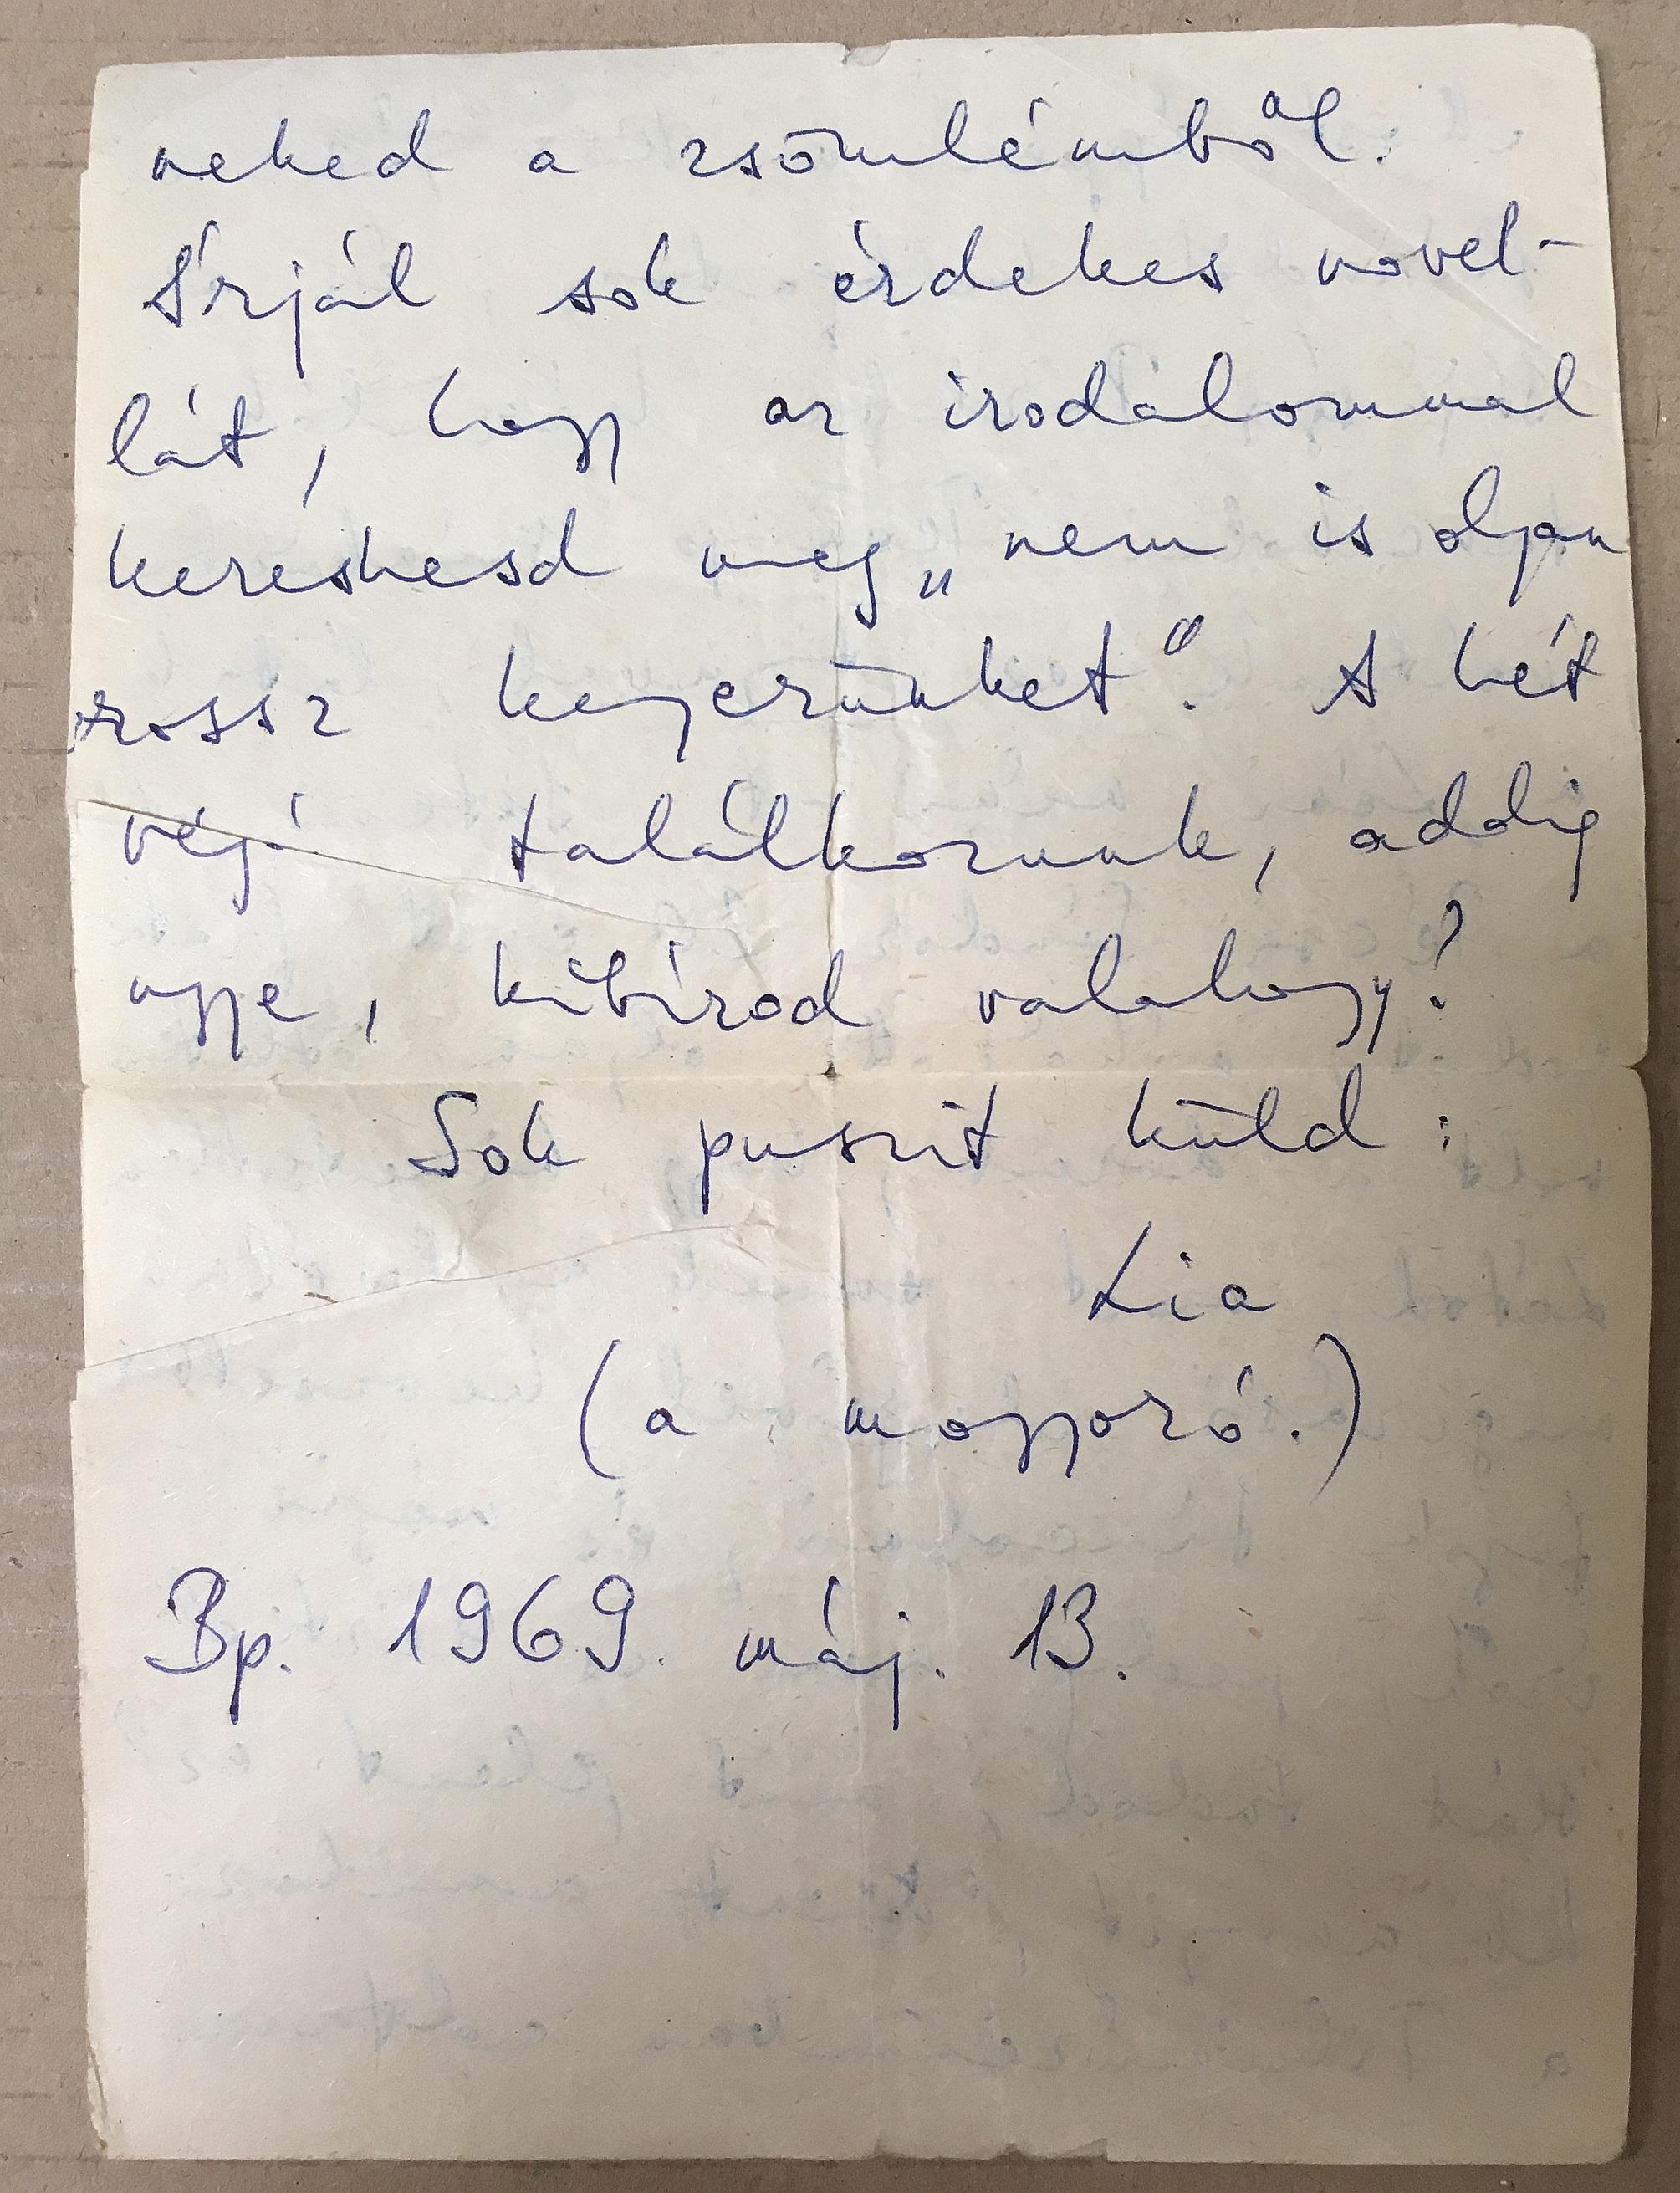 neked a zsömlémből.
Írjál sok érdekes novel-
lát, hogy az irodalommal
kereshesd meg „nem is olyan
rossz kenyerünket". A hét
végi találkozunk, addig
ugye, kibírod valahogy?
Sok puszit küld:
Lia
(a mogyoró.)
Bp. 1969. máj. 13.